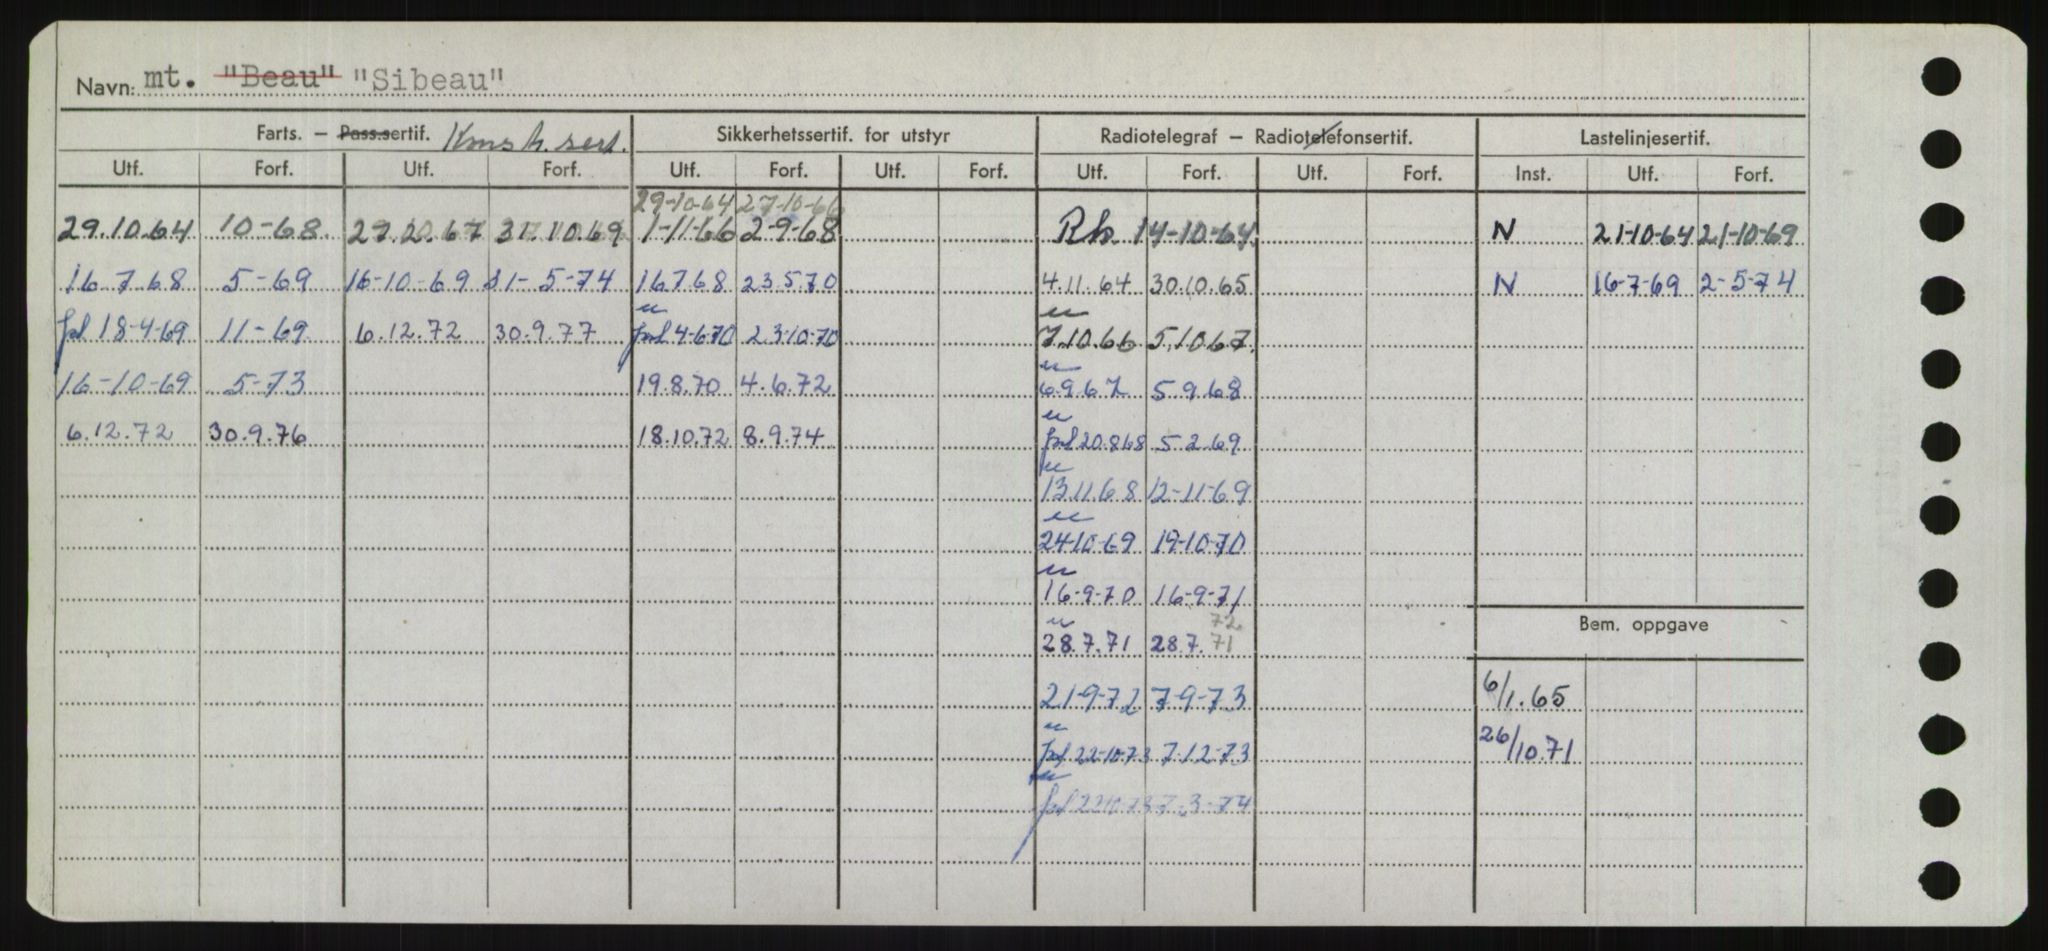 Navn: mt. "Beau" "Sibeau"
Farts. – Pass.sertif. Konstr. sert. Sikkerhetssertif. for utstyr Radiotelegraf – Radiotelefonsertif. Lastelinjesertif.
Utf. Forf. Utf. Forf. Utf. Forf. Utf. Forf. Utf. Forf. Utf. Forf. Inst. Utf. Forf.
29-10-64 27-10-66
29.10.64 10-68. 31.10.69 1-11-66 2-9-68 Rh. 14-10-64. N 21-10-64 21-10-69
16.7.68 5-69 16-10-69 31-5-74 16.7.68 23.5.70 4.11.64 30.10.65 N 16-7-69 2-5-74
u u
fol 18-4-69 11-69 6.12.72 30.9.77 fol 4-6-70 23-10-70 7.10.66 5.10.67.
u
16-10-69 5-73 19.8.70 4.6.72 6.9.67 5.9.68
u
6.12.72 30.9.76 18.10.72 8.9.74 fol 20.8.68 5.2.69
u
13.11.68 12-11-69
u
24-10-69 19-10-70
u
16-9-70 16-9-71
u 72
28.7.71 28.7.71
Bem. oppgave
21-9-72 7-9-73 6/1.65
u
fol 22-10-73 7-12-73 26/10.71
u
fol 22-10-73 7-3-74